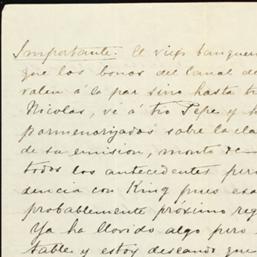 Importante. El viejo banquero
que los bonos del Canal de
valen á la par sino hasta
Nicolas, vé á tio Pepe y
pormenorizados sobre la cla
de su emision, monto de
todos los antecedentes per
dencia con King pues es
probablemente próximo reg
Ya ha llovido algo pero
table y estoy deseando que